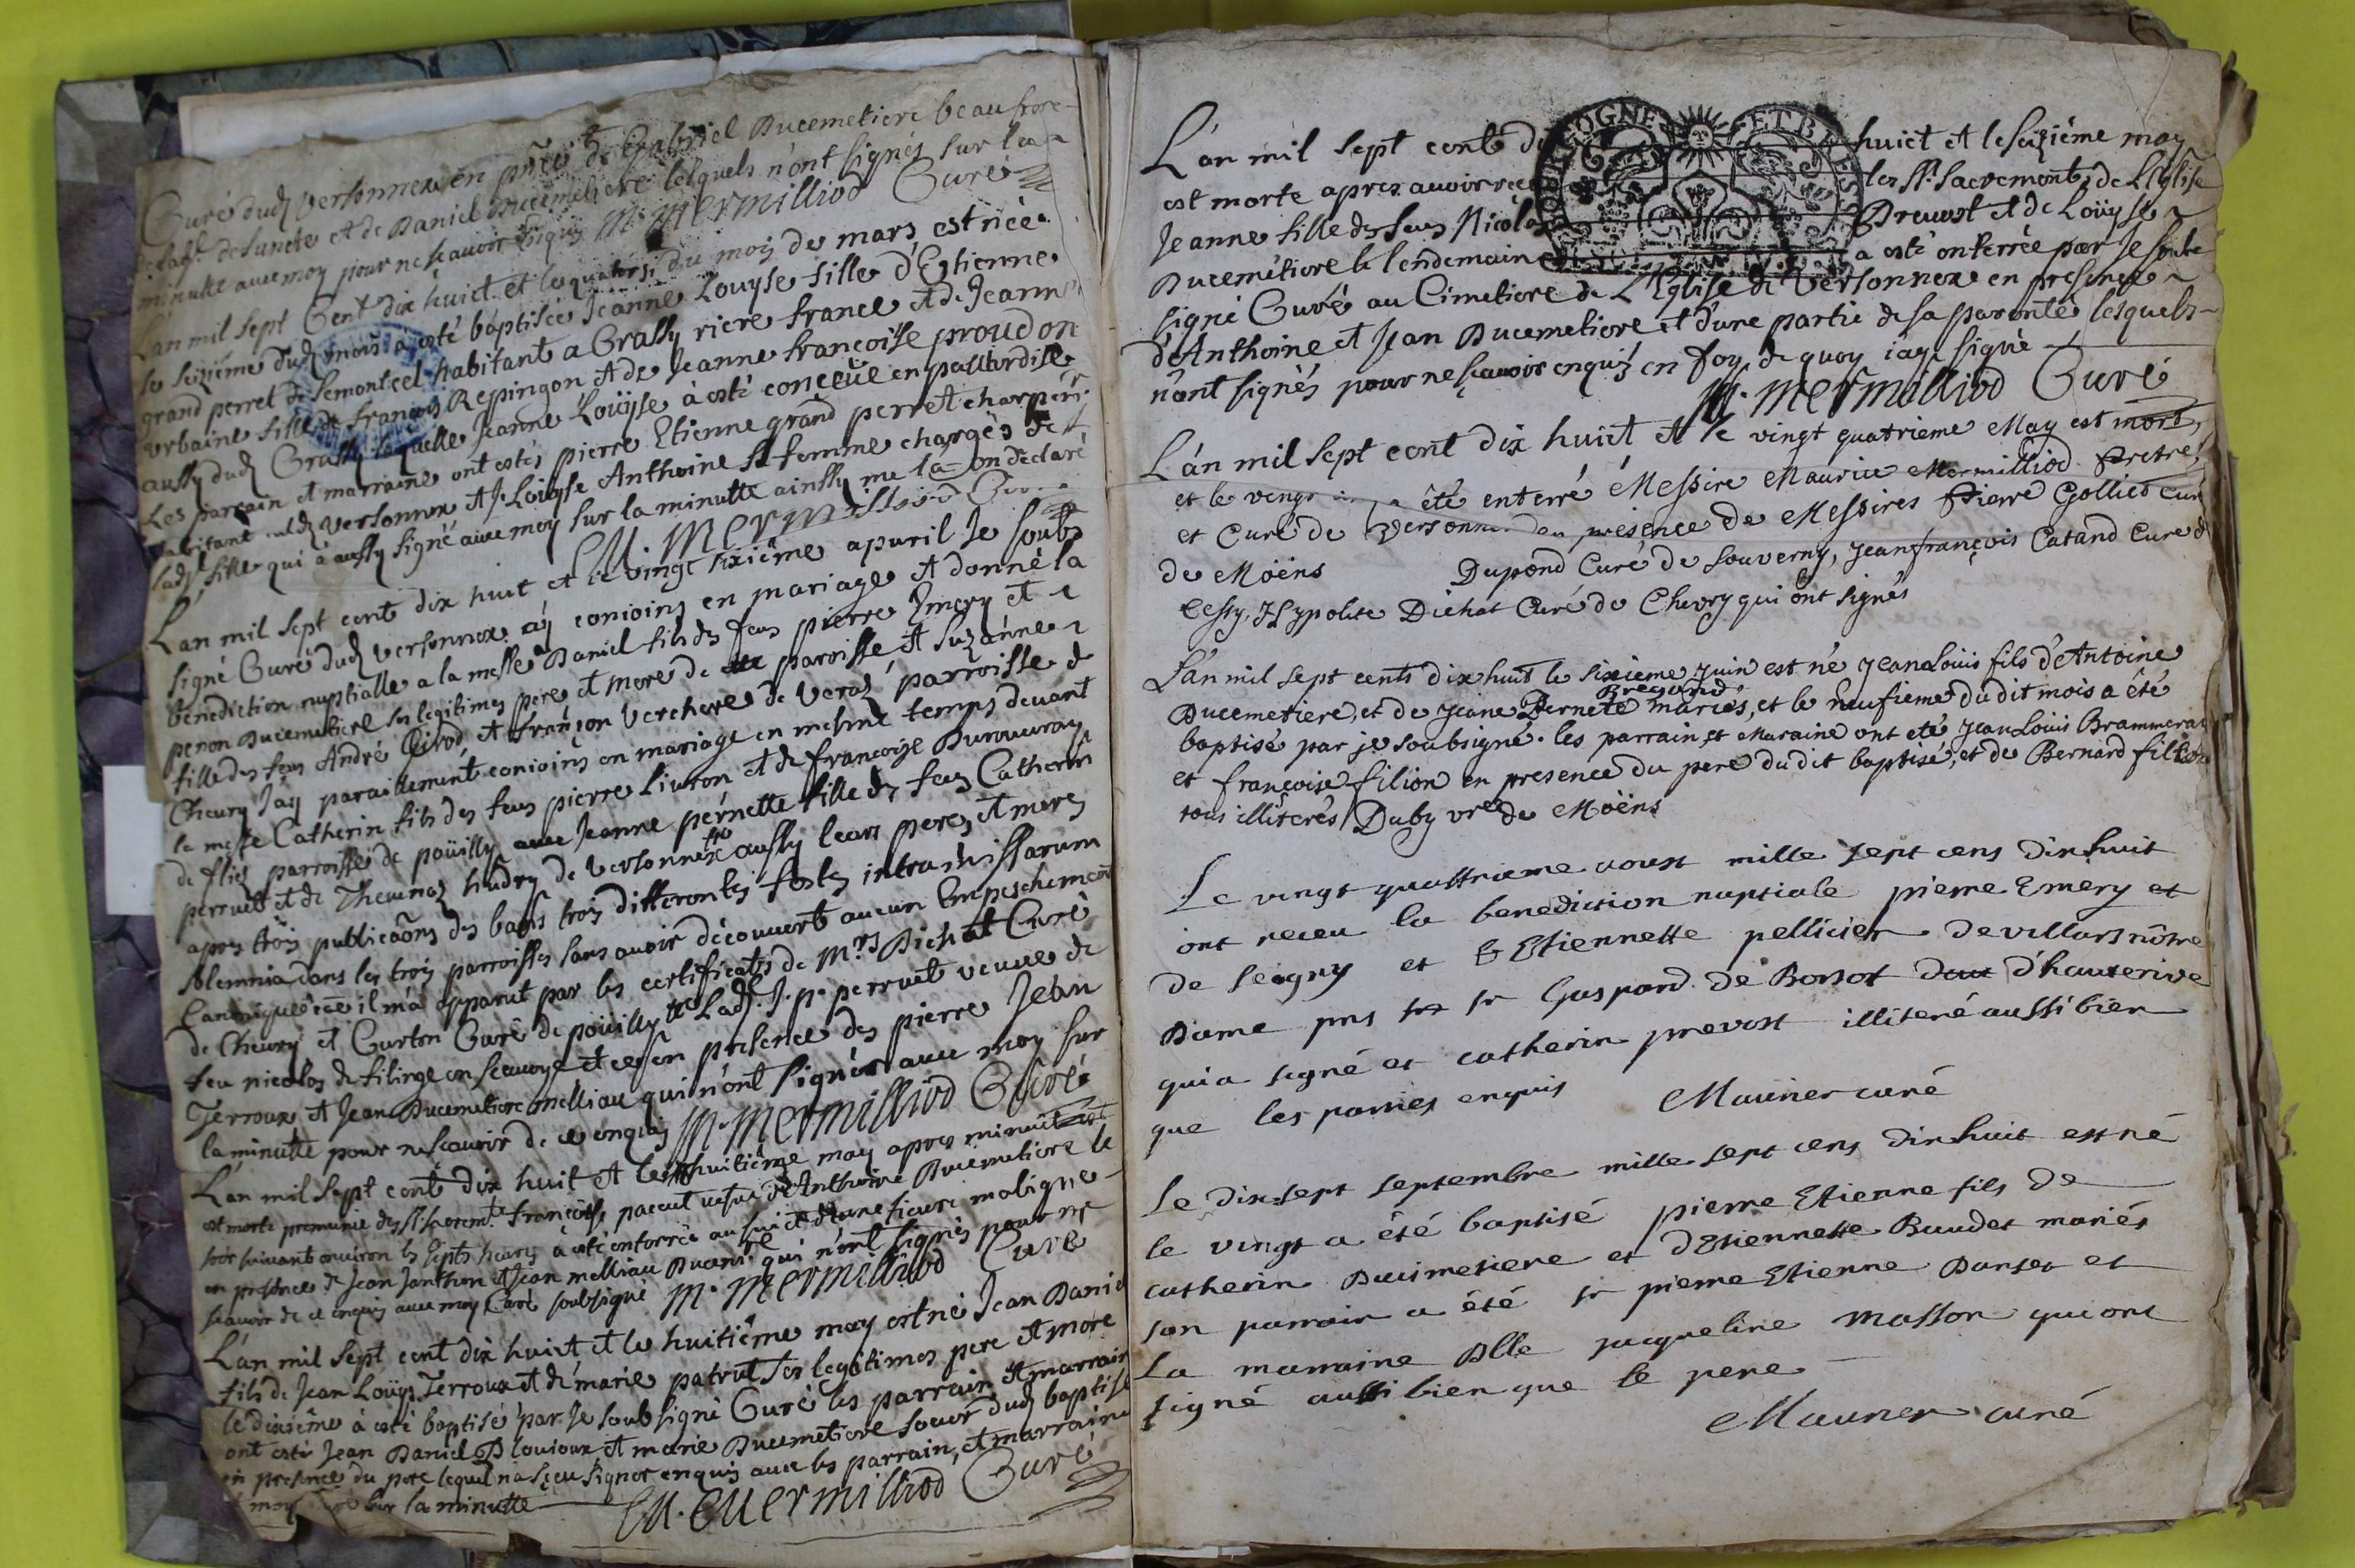 Curé dud Versonnex en pñce de Gabriel Ducemetiere beaufrere
de lad defuncte et de Daniel Ducemetiere lesquels n'ont signés sur la
minutte avec moy pour ne scavoir enquis M. Mermilliod Curé
L'an mil sept Cent dix huict et le quatorsi du mois de mars est néé
le seizième dud mois a esté baptisée Jeanne Louyse fille d'Estienne
grand perret de Semontcel habitant a Grassy riere france et de Jeanne
urbaine fille de françois Reppingon et de Jeanne françoise proudon
aussy dud Grassy laquelle Jeanne Loüyse à esté conceüe en paillardise
Les parrain et marraine ont estés pierre Etienne grand perret charpẽtr
habitant aud Versonnex et Loüyse Anthoine sa femme chargés de
lad fille qui à aussy signé avec moy sur la minutte ainssy me la on déclaré
M. Mermilliod Curé
L'an mil sept cent dix huit et le vingt sixième apvril Je soubs
signé Curé dud Versonnex ay conjoins en mariage et donné la
bénédiction nuptialle a la messe Daniel fils des feus pierre Emery et
penon Ducemetiere ses legitimes pere et mere de paroisse et Suzanne
fille des feus André Girod et françon Verchere de Veraz parroisse de
Cheury Jay pareillement conjoins en mariage en mesme temps devant
la messe Catherin fils des feus pierre Livron et de françoise Duvouvray
de fliez parroisse de poüilly avec Jeanne pernette fille de feu Catherin
perruet et de Thevenaz hudry de Versonnex aussy leurs peres et meres
apres trois publicaõns des bans trois differentes festes intra missarum
solemnia dans les trois parroisses sans avoir découvert aucun Empeschement
Canonique il m'a apparut par les certificats de Mrs Dichat Curé
de Cheury et Gurton Curé de poüilly Lad J. pe perruet veuve de
feu nicolas de filinge en Scavoye et ces en presence des pierre Jean
Terroux et Jean Ducemetiere melliau qui n'ont signés avec moy sur
la minutte pour ne scavoir de ce enquis M. Mermilliod Curé
L'an mil sept cent dix huit et le huitième may apres minuit
est morte premunie des Sts sacremts françoise paccut vefue d'Anthoine Ducemetiere le
soir suivant environ les septs heures à esté enterrée au suiet d'une fieure maligne
en presence de Jean Janthon et Jean melliau Ducemre qui n'ont signés pour ne
scavoir de ce enquis avec moy Curé soubsigné M. Mermilliod Curé
L'an mil sept cent dix huict et le huitième may est né Jean Daniel
fils de Jean Loüys Terroux et de marie patrut ses legitimes pere et mere
le dixième à esté baptisé par Je soubsigné Curé les parrain et marraine
ont esté Jean Daniel Bloujoux et marie Ducemetiere soeur dud baptisé
en presence du pere lequel n'a sçeu signer enquis avec les parrain, et marraine
et moy Curé sur la minutte
M. Mermilliod Curé
L'an mil sept cent dix huict et le seizième may
est morte apres avoir receu les Sts Sacrements de L'Eglise
Jeanne fille de feu Nicolas Prevost et de Loüyse
Ducemetiere le lendemain a esté enterrée par Je soubs
signé Curé au Cimetiere de L'Eglise de Versonnex en presence
d'Anthoine et Jean Ducemetiere et d'une partie de sa parenté lesquels
n'ont signés pour ne scavoir enquis en foy de quoy j'ay signé
M. Mermilliod Curé
L'an mil sept cent dix huict et le vingt quatrieme May est mort,
et le vingt été enterré Messire Maurice Mermilliod Pretre,
et Curé de Versonnex en presence de Messires Pierre Golliet curé
de Moëns Dupond Curé de Souverny, Jeanfrançois Catand Cure de
Cessy, Hypolite Dichat Curé de Chevry qui ont signés
L'an mil sept cents dix huit le sixieme Juin est né Jean Loüis fils d'Antoine
Bregand
Ducemetiere, et de Jeane Pernete mariés, et le neufieme du dit mois a été
baptisé par je soubsigné. les parrain et Maraine ont eté Jean Louis Brammeran
et françoise filion en presence du pere du dit baptisé, et de Bernard filion
tous illiterés / Duby vre de Moëns
Le vingt quattrieme aoust mille sept cens dix huit
ont receu la benediction nuptiale pierre Emery et
de Segny et Etiennette pellicier de villars nôtre
Dame pns sr Gaspard de Borsot d'hauterive
qui a segné et catherin prevost illiteré aussi bien
que les parties enquis Maurier curé
Le dix-sept septembre mille sept cens dix huit est né
le vingt a été baptisé pierre Etienne fils de
catherin Ducimetiere et d'Etiennette Baudet mariés
son parrain a été sr pierre Etienne Danset et
la marraine Dlle jacqueline Masson qui ont
signé aussi bien que le pere
Maurier curé